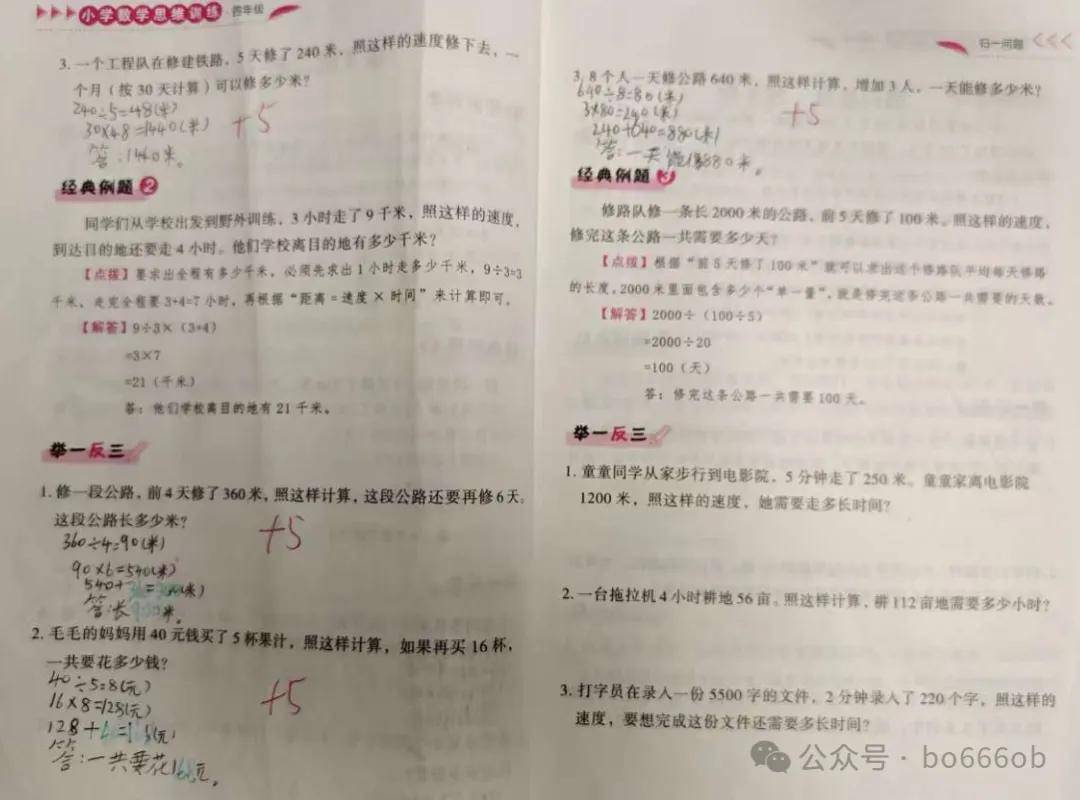 小学数学思维训练·四年级
3. 一个工程队在修建铁路,5天修了240米,照这样的速度修下去,一
个月(按30天计算)可以修多少米?
240÷5=48(米)
30×48=1440(米)
+5
答:1440米。
经典例题 2
同学们从学校出发到野外训练,3小时走了9千米,照这样的速度,
到达目的地还要走4小时。他们学校离目的地有多少千米?
【点拨】要求出全程有多少千米,必须先求出1小时走多少千米,9÷3=3
千米,走完全程要3+4=7小时,再根据“距离=速度×时间”来计算即可。
【解答】9÷3×(3+4)
=3×7
=21(千米)
答:他们学校离目的地有21千米。
举一反三
1. 修一段公路,前4天修了360米,照这样计算,这段公路还要再修6天。
这段公路长多少米?
360÷4=90(米)
+5
90×6=540(米)
540+ = (米)
答:长900米。
2. 毛毛的妈妈用40元钱买了5杯果汁,照这样计算,如果再买16杯,
一共要花多少钱?
40÷5=8(元)
16×8=128(元)
+5
128+ = (元)
答:一共要花168元。
归一问题
3. 8个人一天修公路640米,照这样计算,增加3人,一天能修多少米?
640÷8=80(米)
3×80=240(米)
+5
240+640=880(米)
答:一天能修880米。
经典例题 3
修路队修一条长2000米的公路,前5天修了100米。照这样的速度,
修完这条公路一共需要多少天?
【点拨】根据“前5天修了100米”就可以求出这个修路队平均每天修路
的长度,2000米里面包含多少个“单一量”,就是修完这条公路一共需要的天数。
【解答】2000÷(100÷5)
=2000÷20
=100(天)
答:修完这条公路一共需要100天。
举一反三
1. 童童同学从家步行到电影院,5分钟走了250米。童童家离电影院
1200米,照这样的速度,她需要走多长时间?
2. 一台拖拉机4小时耕地56亩。照这样计算,耕112亩地需要多少小时?
3. 打字员在录入一份5500字的文件,2分钟录入了220个字,照这样的
速度,要想完成这份文件还需要多长时间?
公众号·bo666ob